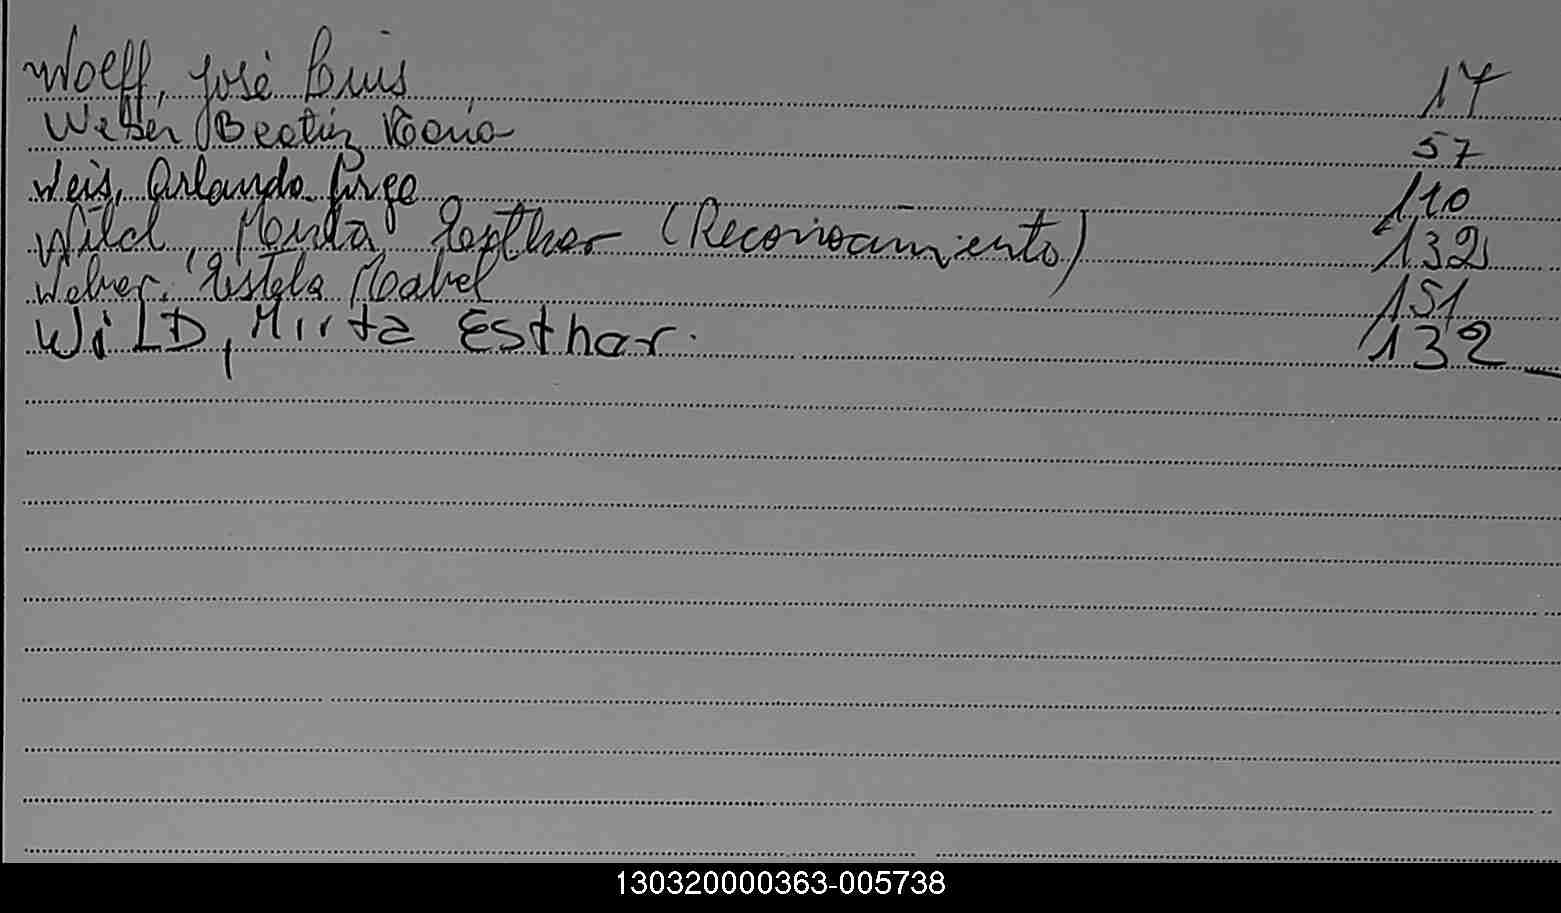 Wolff, José Luis 17
Weber Beatriz María 57
Weis, Orlando Jorge 110
Wild, Mirta Esther (Reconocimiento) 132
Weber, Estela Mabel 151
WiLD, Mirta Esther. 132
130320000363-005738